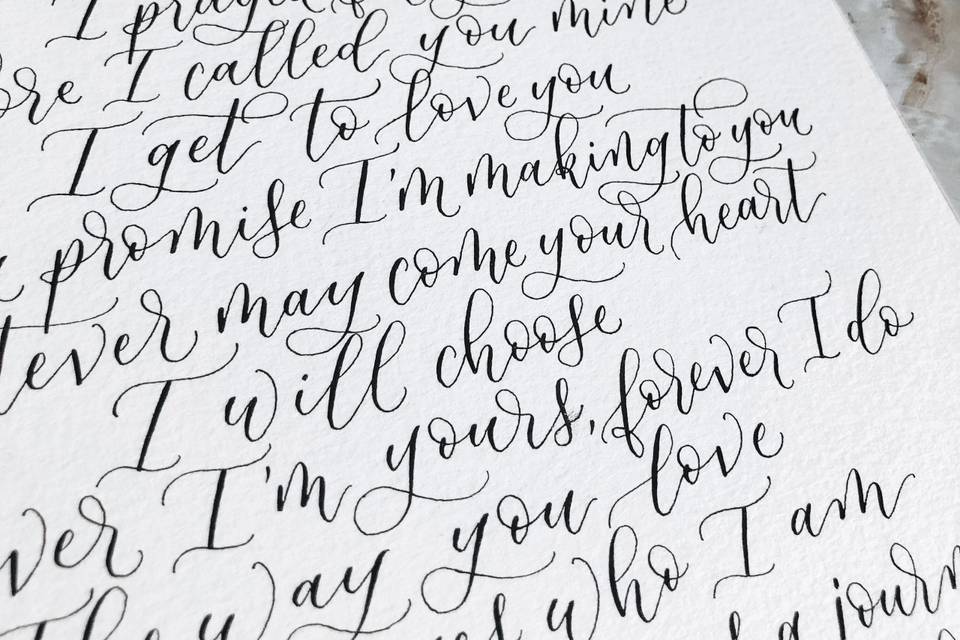 I prayed
I called you mine
I get to love you
promise I'm making to you
may come your heart
I will choose
I'm yours, forever I do
way you love
who I am
a journ